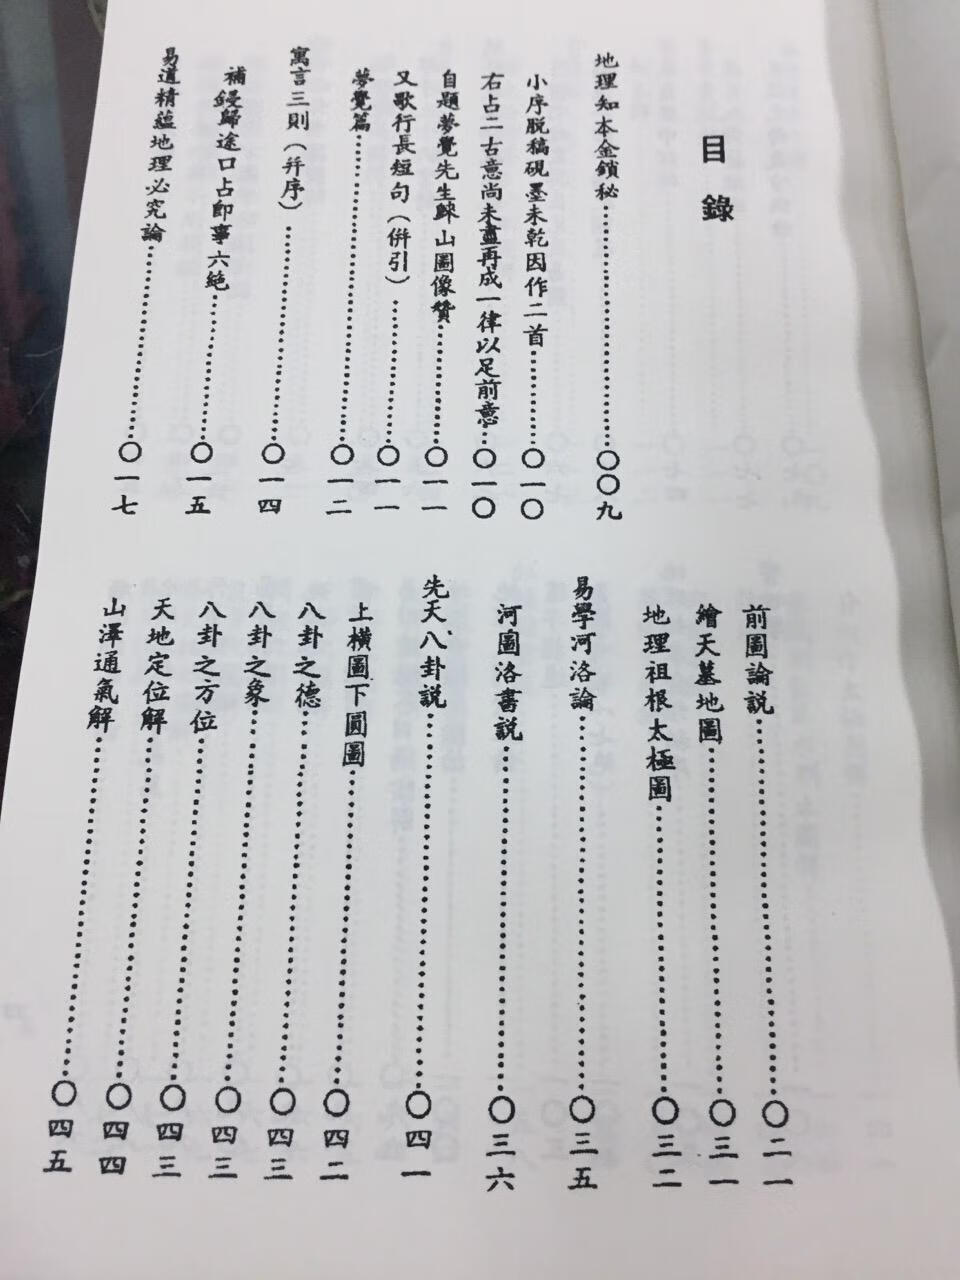 目錄
地理知本金鎖秘……〇〇九
小序脫稿硯墨未乾因作二首……〇一〇
右占二古意尚未盡再成一律以足前意……〇一〇
自題夢覺先生歸山圖像贊……〇一一
又歌行長短句（併引）……〇一一
夢覺篇……〇一二
寓言三則（并序）……〇一四
補鏝歸途口占即事六絕……〇一五
易道精蘊地理必究論……〇一七
前圖論説……〇二一
繪天墓地圖……〇三一
地理祖根太極圖……〇三二
易學河洛論……〇三五
河圖洛書説……〇三六
先天八卦説……〇四一
上橫圖下圓圖……〇四二
八卦之德……〇四三
八卦之象……〇四三
八卦之方位……〇四三
天地定位解……〇四四
山澤通氣解……〇四五